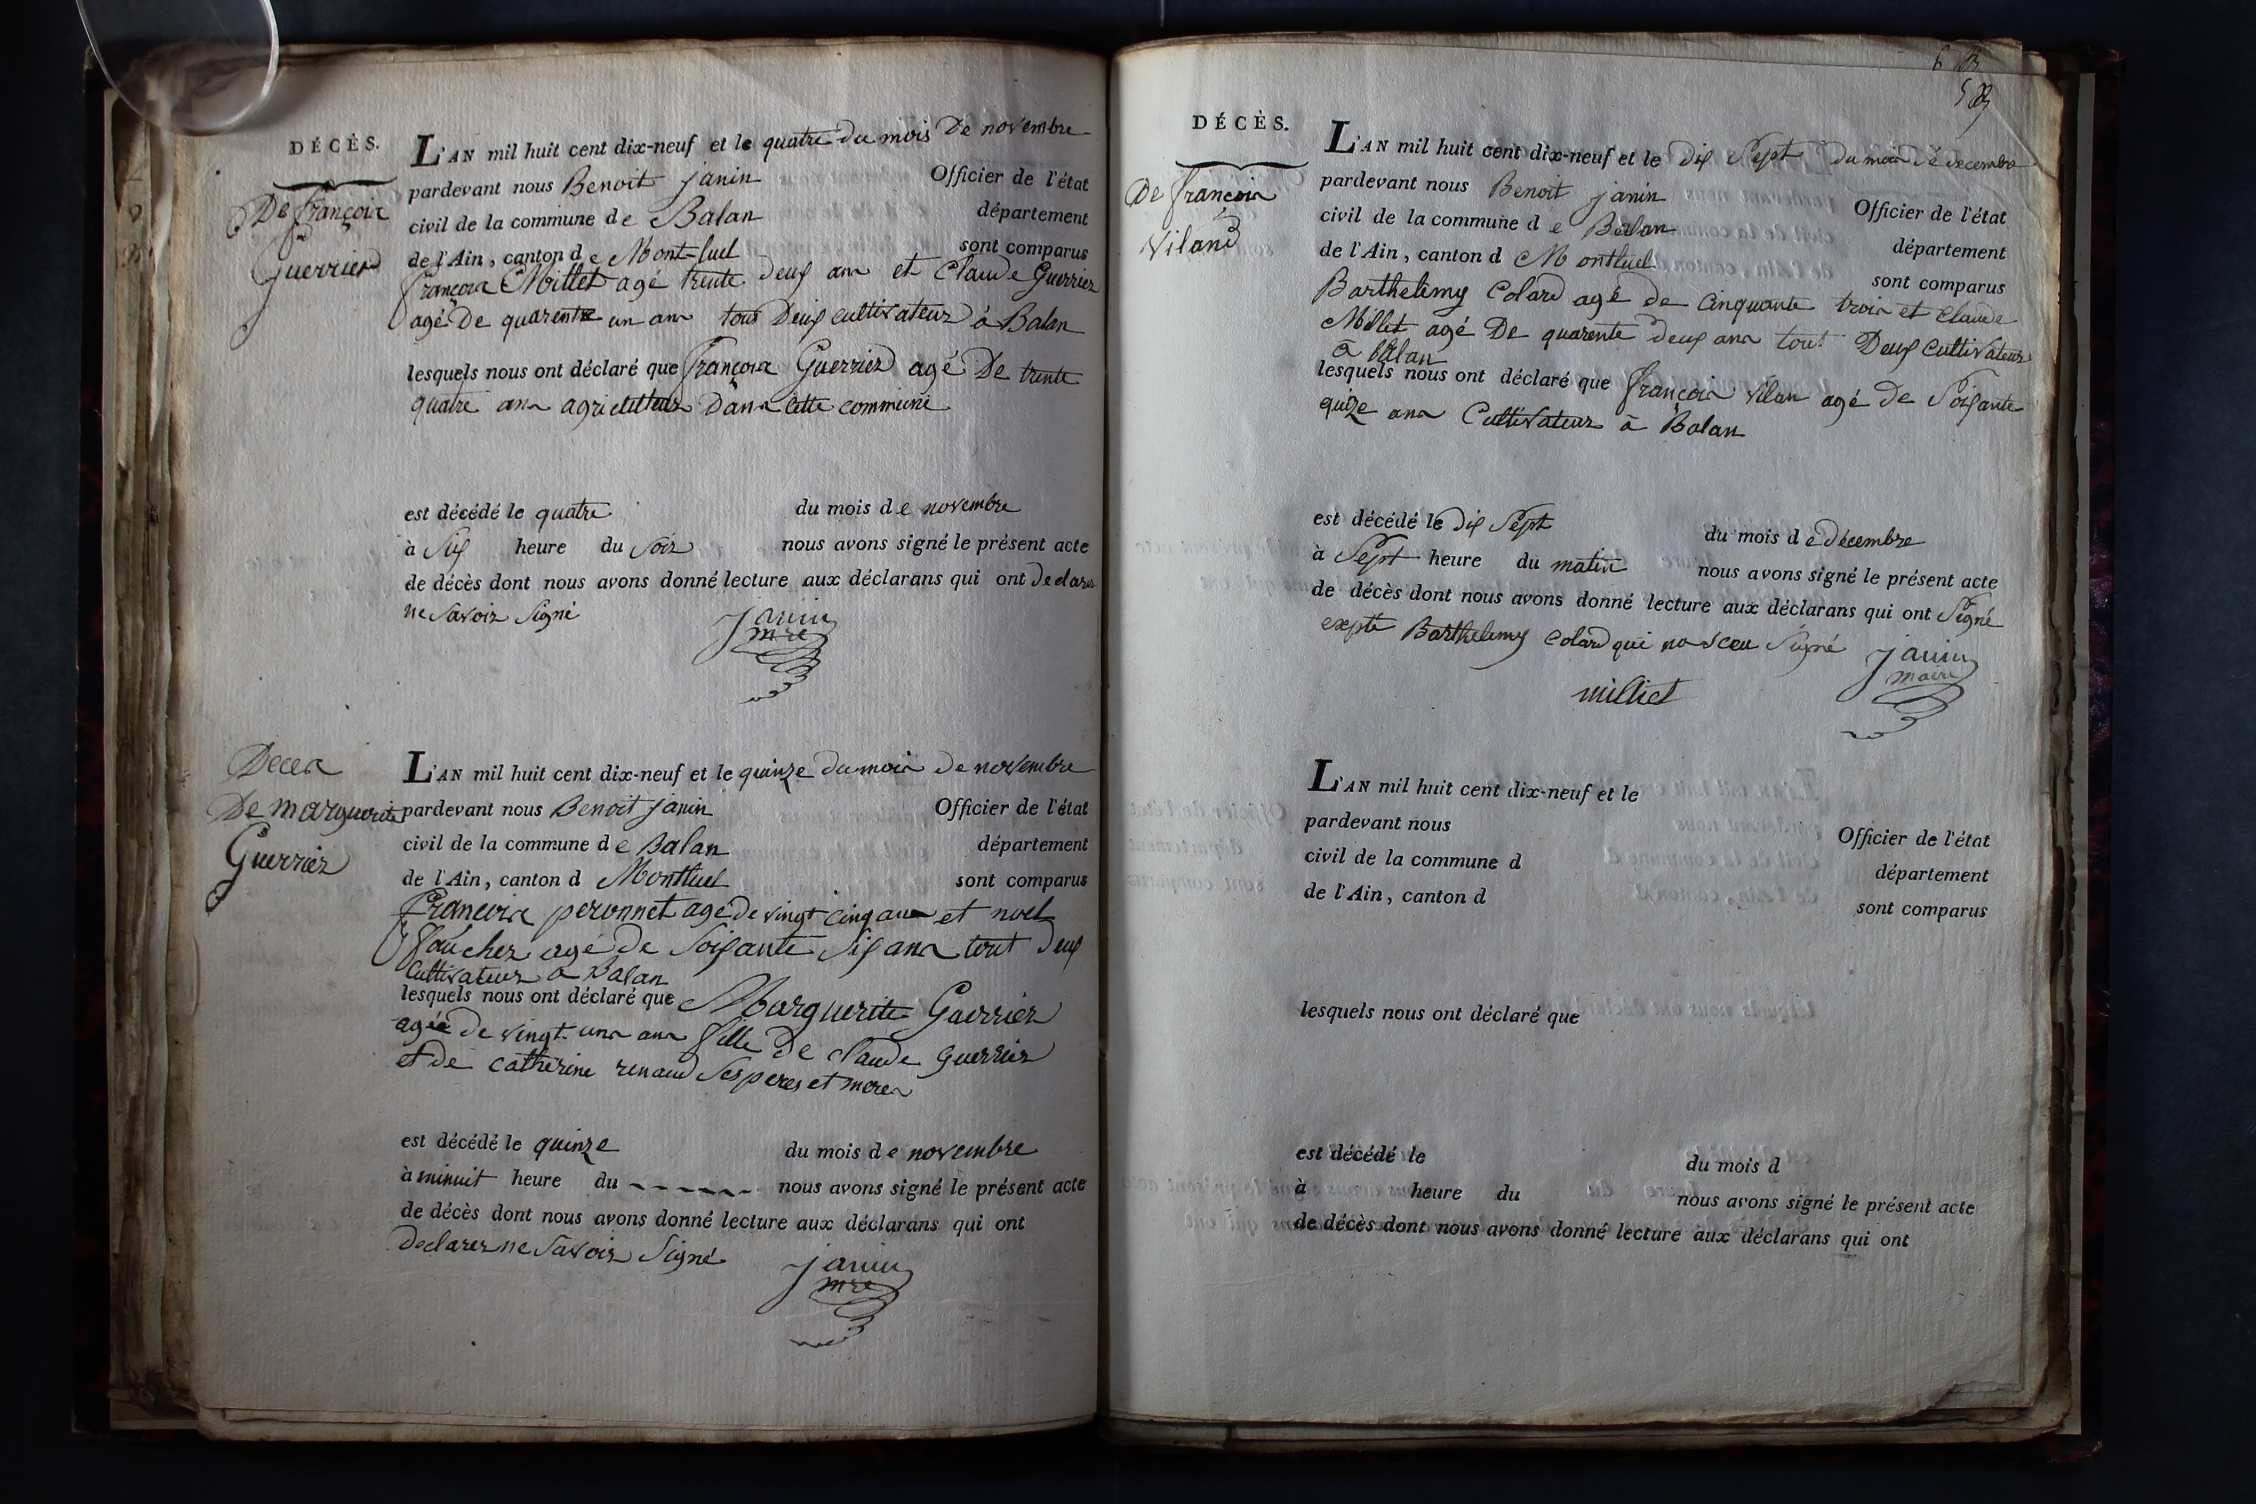 DÉCÈS.
De françois
Guerrier
L'AN mil huit cent dix-neuf et le quatre du mois De novembre
pardevant nous Benoit janin Officier de l'état
civil de la commune de Balan département
de l'Ain, canton de Mont-luel sont comparus
françois Millet agé trente deux ans et Claude Guerrier
agé De quarente un ans tous Deux cultivateur à Balan
lesquels nous ont déclaré que françois Guerrier agé De trente
quatre ans agriculteur Dans Cette commune
est décédé le quatre du mois de novembre
à Six heure du Soir nous avons signé le présent acte
de décès dont nous avons donné lecture aux déclarans qui ont Declarer
ne Savoir Signé
janin
mre
Deces
De marguerite
Guerrier
L'AN mil huit cent dix-neuf et le quinze du mois de novembre
pardevant nous Benoit janin Officier de l'état
civil de la commune de Balan département
de l'Ain, canton d Montluel sont comparus
françois peronnet agé de vingt cinq ans et noel
faucher agé de Soixante Six ans tout Deux
Cultivateur a Balan
lesquels nous ont déclaré que Marguerite Guerrier
agée de vingt-uns ans fille De claude Guerrier
et de catherine renaud Ses peres et meres
est décédé le quinze du mois de novembre
à minuit heure du nous avons signé le présent acte
de décès dont nous avons donné lecture aux déclarans qui ont
Declarer ne Savoir Signé
janin
mre
DÉCÈS.
De françois
Viland
L'AN mil huit cent dix-neuf et le dix Sept du mois de decembre
pardevant nous Benoit janin Officier de l'état
civil de la commune de Balan département
de l'Ain, canton d Montluel sont comparus
Barthelemy Colard agé de Cinquante trois et Claude
Millet agé De quarente deux ans tout Deux Cultivateur
a balan
lesquels nous ont déclaré que françois Vilan agé de Soixante
quize ans Cultivateur à Balan
est décédé le dix Sept du mois de décembre
à Sept heure du matin nous avons signé le présent acte
de décès dont nous avons donné lecture aux déclarans qui ont Signé
expté Barthelemy Colard qui na sceu Signé
janin
maire
milliet
L'AN mil huit cent dix-neuf et le
pardevant nous Officier de l'état
civil de la commune d département
de l'Ain, canton d sont comparus
lesquels nous ont déclaré que
est décédé le du mois d
à heure du nous avons signé le présent acte
de décès dont nous avons donné lecture aux déclarans qui ont